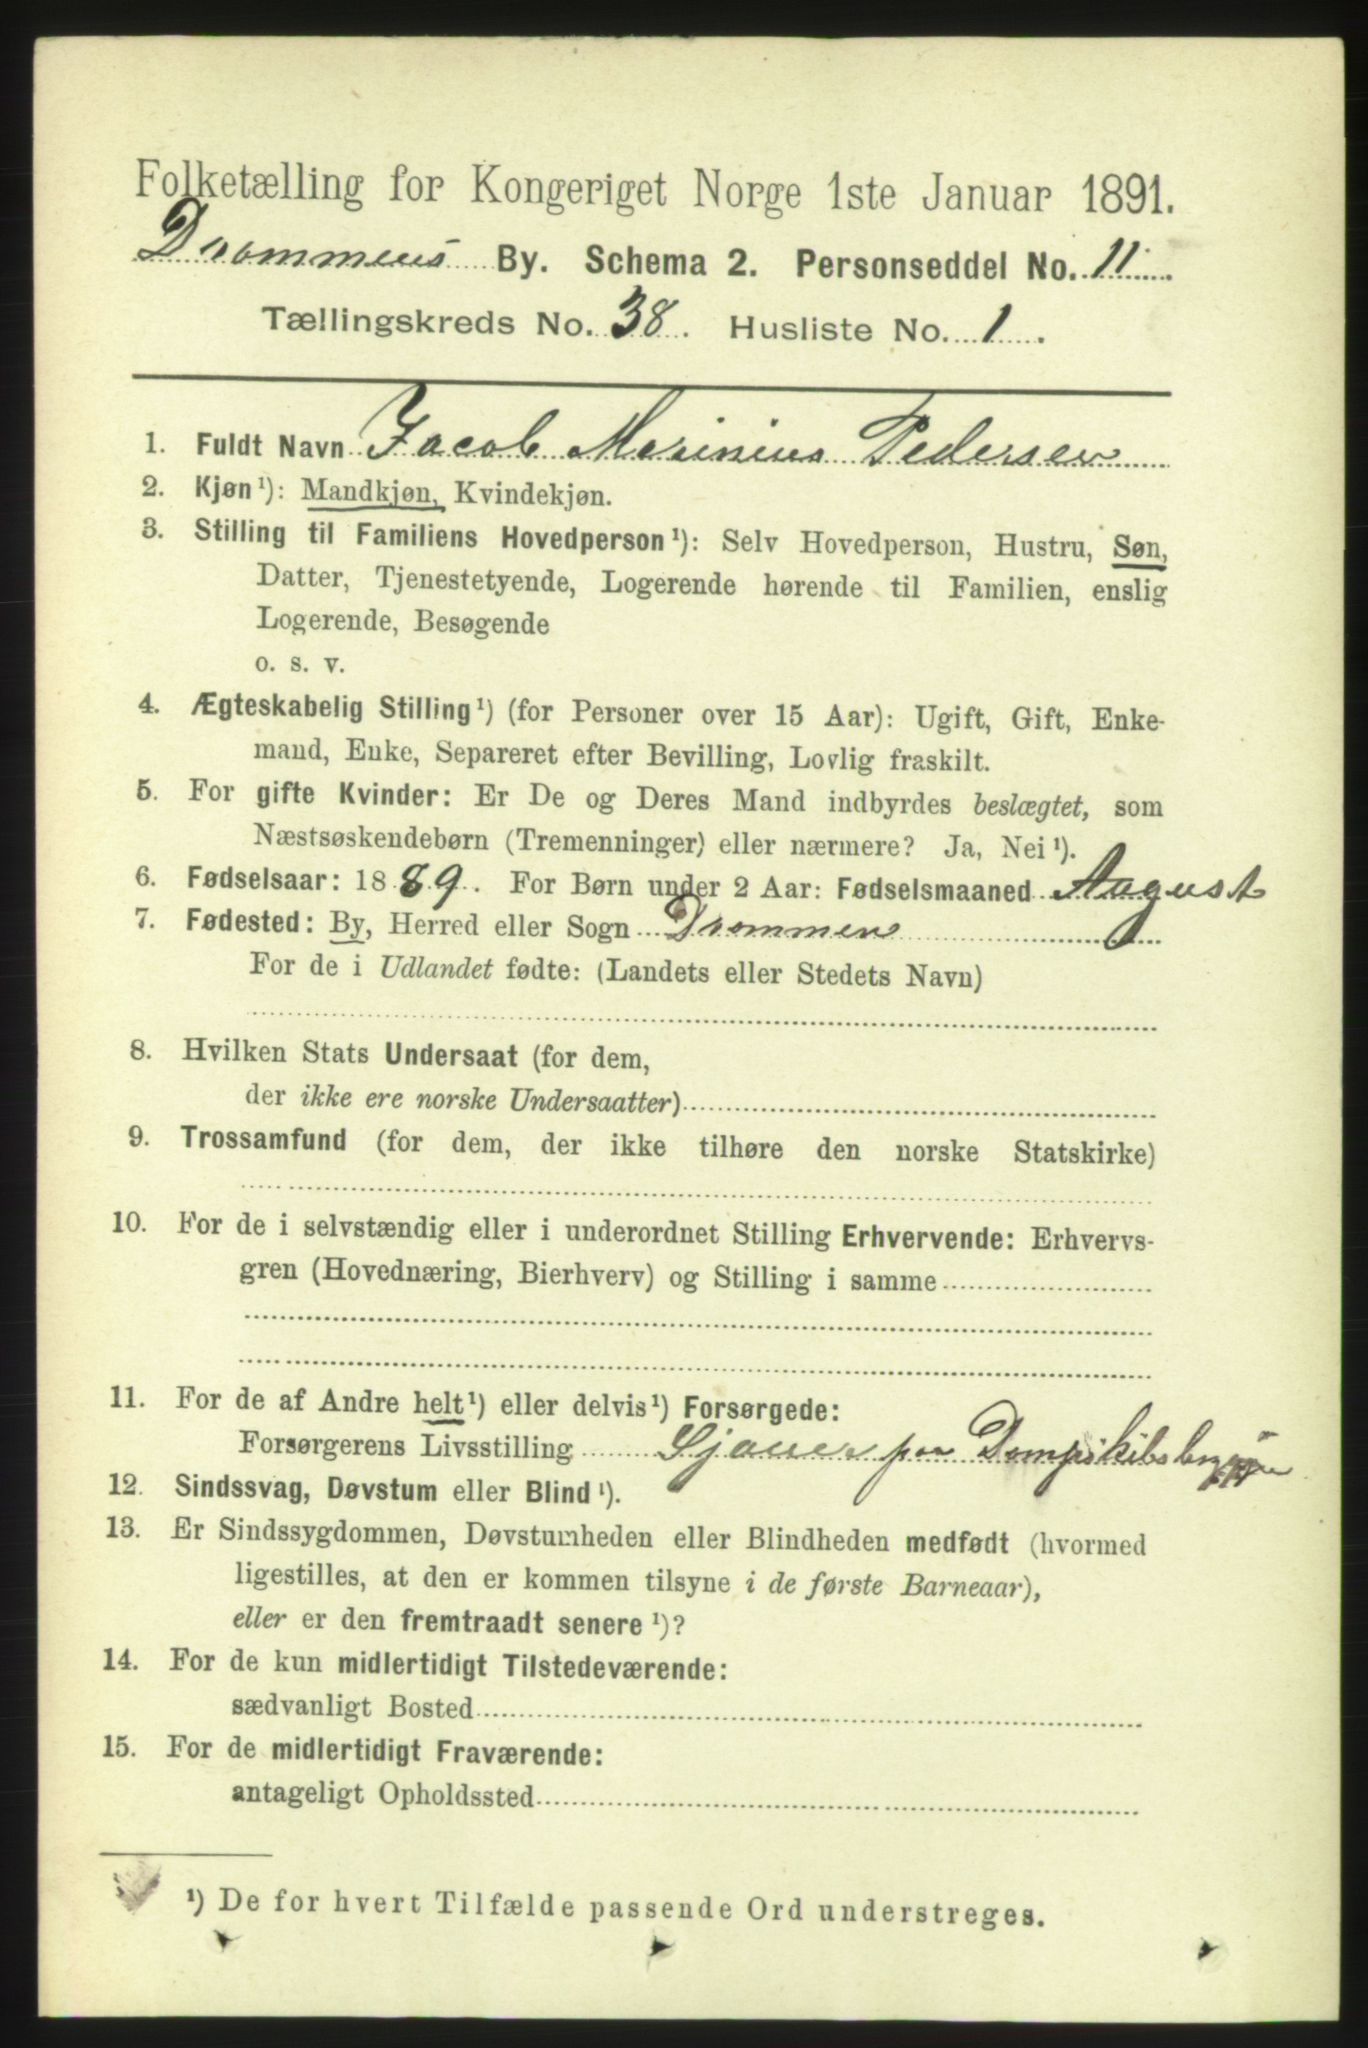 Folketælling for Kongeriget Norge 1ste Januar 1891.
Drammens By. Schema 2. Personseddel No. 11
Tællingskreds No. 38. Husliste No. 1.
1. Fuldt Navn Jacob Marinius Pedersen
2. Kjøn¹): Mandkjøn, Kvindekjøn.
3. Stilling til Familiens Hovedperson¹): Selv Hovedperson, Hustru, Søn,
Datter, Tjenestetyende, Logerende hørende til Familien, enslig
Logerende, Besøgende
o. s. v.
4. Ægteskabelig Stilling¹) (for Personer over 15 Aar): Ugift, Gift, Enke-
mand, Enke, Separeret efter Bevilling, Lovlig fraskilt.
5. For gifte Kvinder: Er De og Deres Mand indbyrdes beslægtet, som
Næstsøskendebørn (Tremenninger) eller nærmere? Ja, Nei¹).
6. Fødselsaar: 1889. For Børn under 2 Aar: Fødselsmaaned August
7. Fødested: By, Herred eller Sogn Drammen
For de i Udlandet fødte: (Landets eller Stedets Navn)
8. Hvilken Stats Undersaat (for dem,
der ikke ere norske Undersaatter)
9. Trossamfund (for dem, der ikke tilhøre den norske Statskirke)
10. For de i selvstændig eller i underordnet Stilling Erhvervende: Erhvervs-
gren (Hovednæring, Bierhverv) og Stilling i samme
11. For de af Andre helt¹) eller delvis¹) Forsørgede:
Forsørgerens Livsstilling Sjauer paa
12. Sindssvag, Døvstum eller Blind¹).
13. Er Sindssygdommen, Døvstumheden eller Blindheden medfødt (hvormed
ligestilles, at den er kommen tilsyne i de første Barneaar),
eller er den fremtraadt senere¹)?
14. For de kun midlertidigt Tilstedeværende:
sædvanligt Bosted
15. For de midlertidigt Fraværende:
antageligt Opholdssted
¹) De for hvert Tilfælde passende Ord understreges.